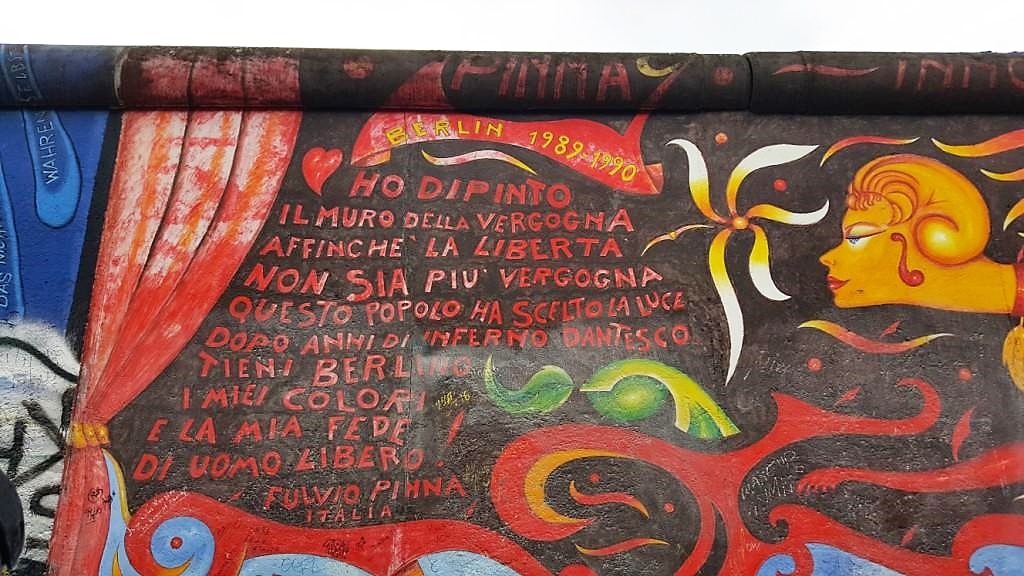 PINNA
INNO
BERLIN 1989-1990
HO DIPINTO
IL MURO DELLA VERGOGNA
AFFINCHE' LA LIBERTA'
NON SIA PIU' VERGOGNA
QUESTO POPOLO HA SCELTO LA LUCE
DOPO ANNI DI INFERNO DANTESCO.
TIENI BERLINO
I MIEI COLORI
E LA MIA FEDE
DI UOMO LIBERO.
FULVIO PINNA
ITALIA
WAHREN
DAS